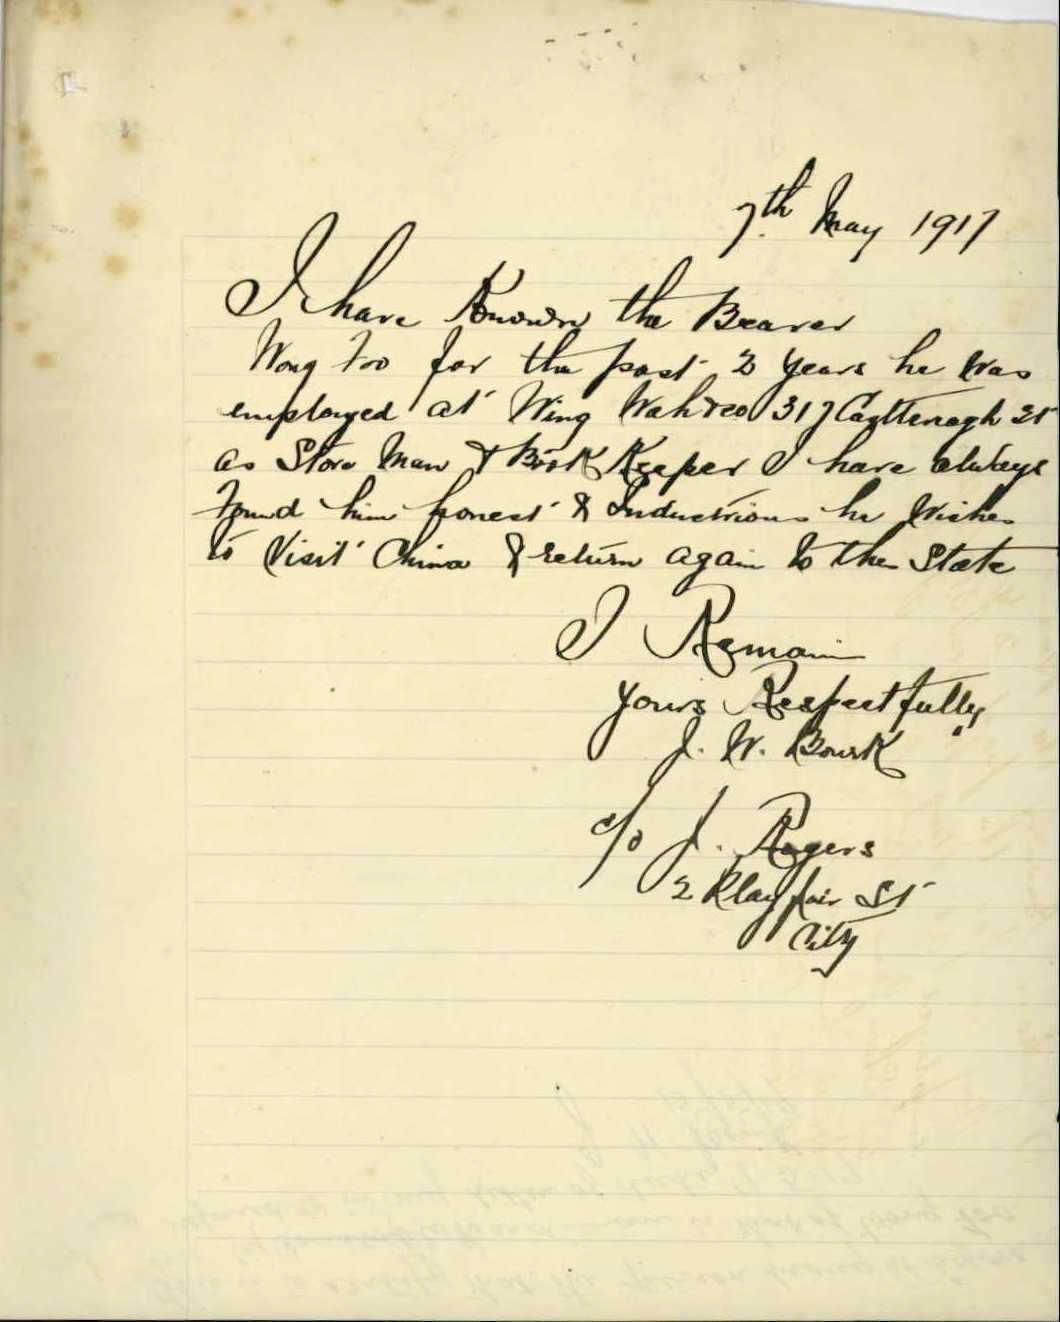 7th May 1917
I have Known the Bearer
Wong Foo for the past 2 years he was
employed at Wing Wah & Co 317 Castlereagh St
as Store Man & Book Keeper I have always
found him honest & Industrious he Wishes
to Visit China & return again to the State
I Remain
Yours Respectfully
J. W. Bourk
c/o J. Rogers
2 Playfair St
City